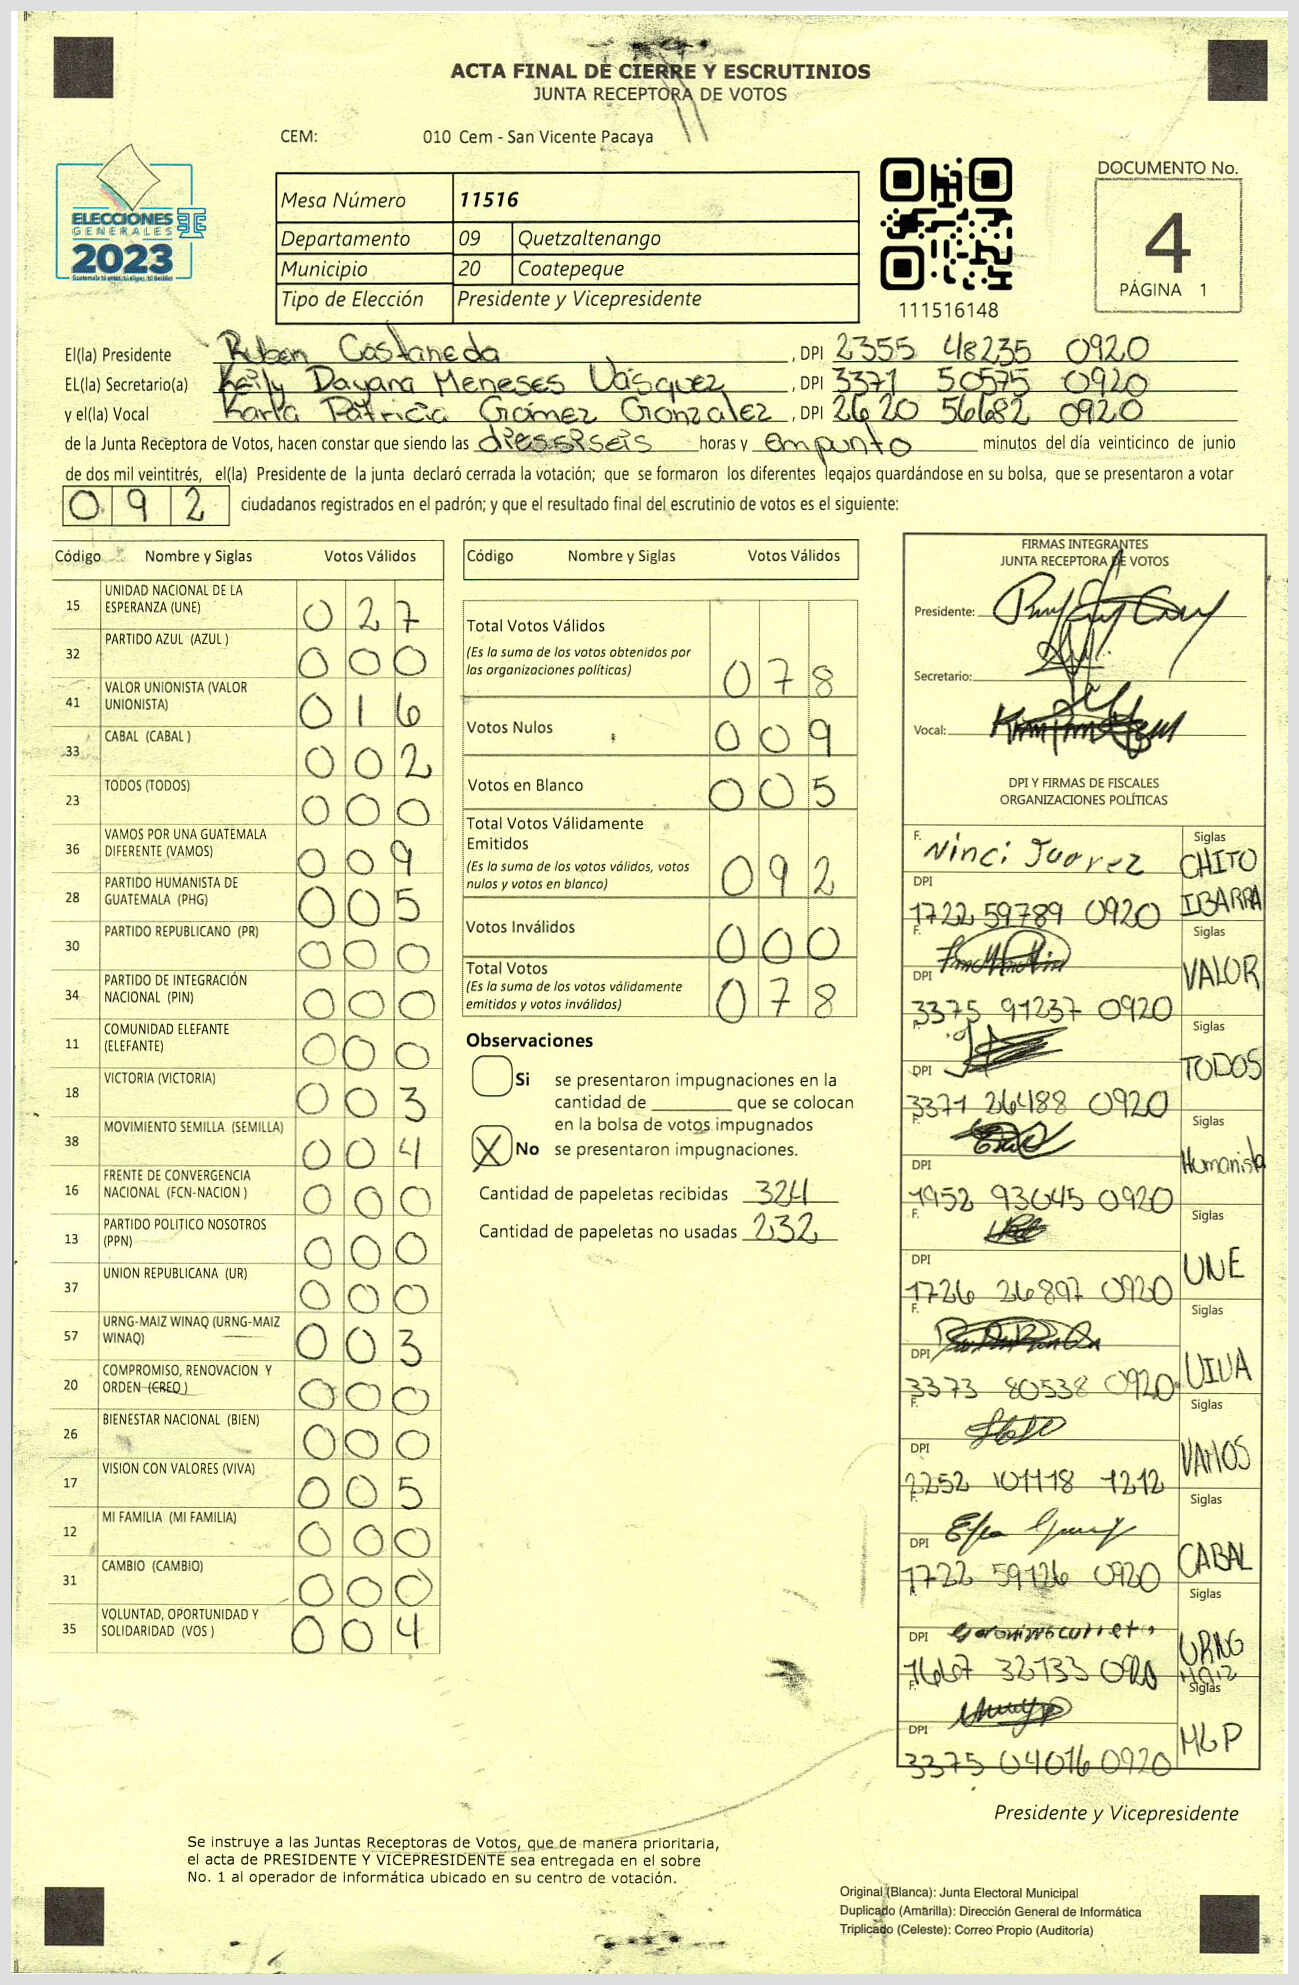 ACTA FINAL DE CIERRE Y ESCRUTINIOS
JUNTA RECEPTORA DE VOTOS
CEM: 010 Cem - San Vicente Pacaya
ELECCIONES
GENERALES
2023
Mesa Número 11516
Departamento 09 Quetzaltenango
Municipio 20 Coatepeque
Tipo de Elección Presidente y Vicepresidente
111516148
DOCUMENTO No.
4
PÁGINA 1
El(la) Presidente Ruben Castaneda , DPI 2355 48235 0920
EL(la) Secretario(a) Keily Dayana Meneses Vásquez , DPI 3371 50575 0920
y el(la) Vocal Karla Patricia Gómez Gonzalez , DPI 2620 56682 0920
de la Junta Receptora de Votos, hacen constar que siendo las diessiseis horas y en punto minutos del día veinticinco de junio
de dos mil veintitrés, el(la) Presidente de la junta declaró cerrada la votación; que se formaron los diferentes legajos quardándose en su bolsa, que se presentaron a votar
092 ciudadanos registrados en el padrón; y que el resultado final del escrutinio de votos es el siguiente:
Código Nombre y Siglas Votos Válidos
15 UNIDAD NACIONAL DE LA ESPERANZA (UNE) 027
32 PARTIDO AZUL (AZUL ) 000
41 VALOR UNIONISTA (VALOR UNIONISTA) 016
33 CABAL (CABAL ) 002
23 TODOS (TODOS) 000
36 VAMOS POR UNA GUATEMALA DIFERENTE (VAMOS) 009
28 PARTIDO HUMANISTA DE GUATEMALA (PHG) 005
30 PARTIDO REPUBLICANO (PR) 000
34 PARTIDO DE INTEGRACIÓN NACIONAL (PIN) 000
11 COMUNIDAD ELEFANTE (ELEFANTE) 000
18 VICTORIA (VICTORIA) 003
38 MOVIMIENTO SEMILLA (SEMILLA) 004
16 FRENTE DE CONVERGENCIA NACIONAL (FCN-NACION ) 000
13 PARTIDO POLITICO NOSOTROS (PPN) 000
37 UNION REPUBLICANA (UR) 000
57 URNG-MAIZ WINAQ (URNG-MAIZ WINAQ) 003
20 COMPROMISO, RENOVACION Y ORDEN (CREO ) 000
26 BIENESTAR NACIONAL (BIEN) 000
17 VISION CON VALORES (VIVA) 005
12 MI FAMILIA (MI FAMILIA) 000
31 CAMBIO (CAMBIO) 000
35 VOLUNTAD, OPORTUNIDAD Y SOLIDARIDAD (VOS ) 004
Código Nombre y Siglas Votos Válidos
Total Votos Válidos 078
(Es la suma de los votos obtenidos por
las organizaciones políticas)
Votos Nulos 009
Votos en Blanco 005
Total Votos Válidamente
Emitidos 092
(Es la suma de los votos válidos, votos
nulos y votos en blanco)
Votos Inválidos 000
Total Votos 078
(Es la suma de los votos válidamente
emitidos y votos inválidos)
Observaciones
Si se presentaron impugnaciones en la
cantidad de ________ que se colocan
en la bolsa de votos impugnados
X No se presentaron impugnaciones.
Cantidad de papeletas recibidas 324
Cantidad de papeletas no usadas 232
FIRMAS INTEGRANTES
JUNTA RECEPTORA DE VOTOS
Presidente:
Secretario:
Vocal:
DPI Y FIRMAS DE FISCALES
ORGANIZACIONES POLÍTICAS
F. Ninci Juarez Siglas CHITO IBARRA
DPI 1722 59789 0920
F. Siglas VALOR
DPI 3375 91237 0920
F. Siglas TODOS
DPI 3371 26488 0920
F. Siglas Humanista
DPI 1952 93045 0920
F. Siglas UNE
DPI 1726 26897 0920
F. Siglas VIVA
DPI 3373 80538 0920
F. Siglas VAMOS
DPI 2252 101118 1212
F. Siglas CABAL
DPI 1722 59126 0920
Siglas URNG MAIZ
DPI 1667 32733 0920
F. Siglas MLP
DPI 3375 04016 0920
Presidente y Vicepresidente
Se instruye a las Juntas Receptoras de Votos, que de manera prioritaria,
el acta de PRESIDENTE Y VICEPRESIDENTE sea entregada en el sobre
No. 1 al operador de informática ubicado en su centro de votación.
Original (Blanca): Junta Electoral Municipal
Duplicado (Amarilla): Dirección General de Informática
Triplicado (Celeste): Correo Propio (Auditoría)